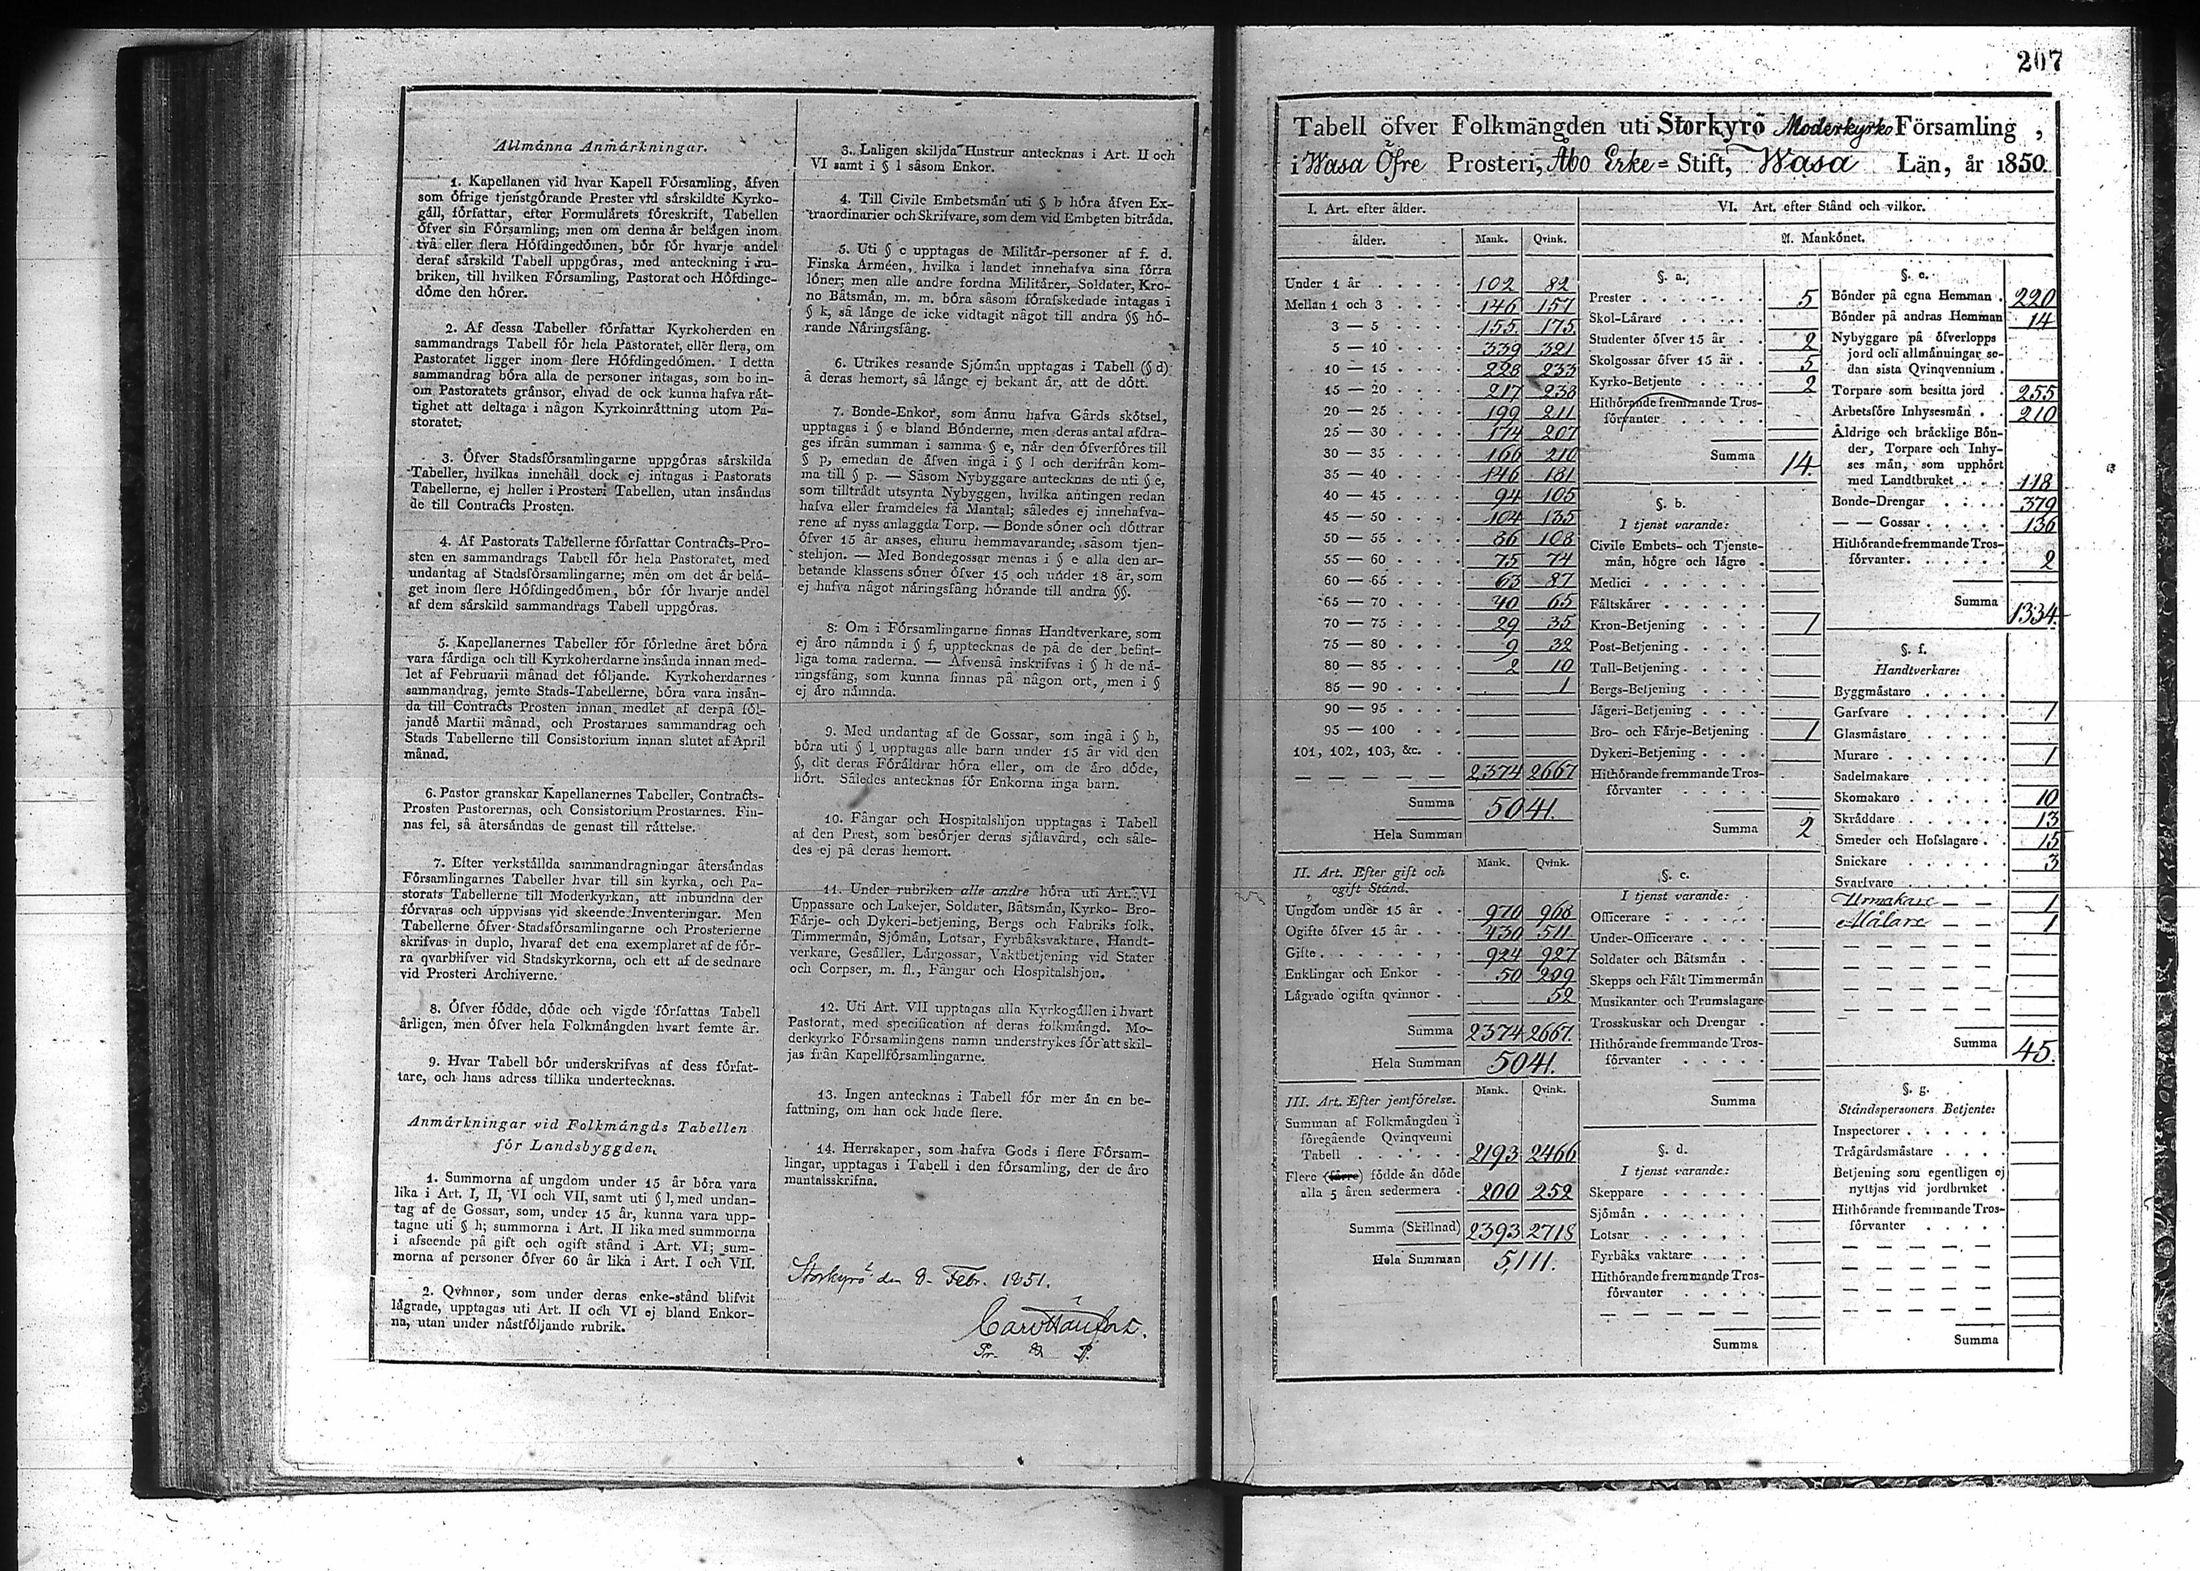 Allmånna Anmårkningar.
1. Kapellanen vid hvar Kapell Fórsamling, åfven
som ófrige tjenstgórande Prester vid sårskildte Kyrko-
gåll, fórfattar, efter Formulårets fóreskrift, Tabellen
ófver sin Fórsamling; men om denna år belågen inom
två eller flera Hófdingedómen, bór fór hvarje andel
deraf sårskild Tabell uppgóras, med anteckning i ru-
briken, till hvilken Fórsamling, Pastorat och Hófdinge-
dóme den hórer.
2. Af dessa Tabeller fórfattar Kyrkoherden en
sammandrags Tabell fór hela Pastoratet, eller flera, om
Pastoratet ligger inom flere Hófdingedómen. I detta
sammandrag bóra alla de personer intagas, som bo in-
om Pastoratets grånsor, ehvad de ock kunna hafva råt-
tighet att deltaga i någon Kyrkoinråttning utom Pa-
storatet.
3. Ófver Stadsfórsamlingarne uppgóras sårskilda
Tabeller, hvilkas innehåll dock ej intagas i Pastorats
Tabellerne, ej heller i Prosteri Tabellen, utan insåndas
de till Contracts Prosten.
4. Af Pastorats Tabellerne fórfattar Contracts-Pro-
sten en sammandrags Tabell fór hela Pastoratet, med
undantag af Stadsfórsamlingarne; men om det år belå-
get inom flere Hófdingedómen, bór fór hvarje andel
af dem sårskild sammandrags Tabell uppgóras.
5. Kapellanernes Tabeller fór fórledne året bóra
vara fårdiga och till Kyrkoherdarne insånda innan med-
let af Februarii månad det fóljande. Kyrkoherdarnes
sammandrag, jemte Stads-Tabellerne, bóra vara insån-
da till Contracts Prosten innan medlet af derpå fól-
jande Martii månad, och Prostarnes sammandrag och
Stads Tabellerne till Consistorium innan slutet af April
månad.
6. Pastor granskar Kapellanernes Tabeller, Contracts-
Prosten Pastorernas, och Consistorium Prostarnes. Fin-
nas fel, så återsåndas de genast till råttelse.
7. Efter verkstållda sammandragningar återsåndas
Fórsamlingarnes Tabeller hvar till sin kyrka, och Pa-
storats Tabellerne till Moderkyrkan, att inbundna der
fórvaras och uppvisas vid skeende Inventeringar. Men
Tabellerne ófver Stadsfórsamlingarne och Prosterierne
skrifvas in duplo, hvaraf det ena exemplaret af de fór-
ra qvarblifver vid Stadskyrkorna, och ett af de sednare
vid Prosteri Archiverne.
8. Ófver fódde, dóde och vigde fórfattas Tabell
årligen, men ófver hela Folkmångden hvart femte år.
9. Hvar Tabell bór underskrifvas af dess fórfat-
tare, och hans adress tillika undertecknas.
Anmårkningar vid Folkmångds Tabellen
fór Landsbyggden.
1. Summorna af ungdom under 15 år bóra vara
lika i Art. I, II, VI och VII, samt uti § l, med undan-
tag af de Gossar, som, under 15 år, kunna vara upp-
tagne uti § h; summorna i Art. II lika med summorna
i afseende på gift och ogift stånd i Art. VI; sum-
morna af personer ófver 60 år lika i Art. I och VII.
2. Qvinnor, som under deras enke-stånd blifvit
lågrade, upptagas uti Art. II och VI ej bland Enkor-
na, utan under nåstfóljande rubrik.
3. Laligen skiljda Hustrur antecknas i Art. II och
VI samt i § l såsom Enkor.
4. Till Civile Embetsmån uti § b hóra åfven Ex-
traordinarier och Skrifvare, som dem vid Embeten bitråda.
5. Uti § c upptagas de Militår-personer af f. d.
Finska Arméen, hvilka i landet innehafva sina fórra
lóner; men alle andre fordna Militårer, Soldater, Kro-
no Båtsmån, m. m. bóra såsom fórafskedade intagas i
§ k, så långe de icke vidtagit något till andra §§ hó-
rande Nåringsfång.
6. Utrikes resande Sjómån upptagas i Tabell (§ d)
å deras hemort, så långe ej bekant år, att de dótt.
7. Bonde-Enkor, som ånnu hafva Gårds skótsel,
upptagas i § e bland Bónderne, men deras antal afdra-
ges ifrån summan i samma § e, når den ófverfóres till
§ p, emedan de åfven ingå i § l och derifrån kom-
ma till § p. — Såsom Nybyggare antecknas de uti § e,
som tilltrådt utsynta Nybyggen, hvilka antingen redan
hafva eller framdeles få Mantal; således ej innehafva-
rene af nyss anlaggda Torp. — Bonde sóner och dóttrar
ófver 15 år anses, ehuru hemmavarande, såsom tjen-
stehjon. — Med Bondegossar menas i § e alla den ar-
betande klassens sóner ófver 15 och under 18 år, som
ej hafva något nåringsfång hórande till andra §§.
8. Om i Fórsamlingarne finnas Handtverkare, som
ej åro nåmnda i § f, upptecknas de på de der befint-
liga toma raderna. — Åfvenså inskrifvas i § h de nå-
ringsfång, som kunna finnas på någon ort, men i §
ej åro nåmnda.
9. Med undantag af de Gossar, som ingå i § h,
bóra uti § l upptagas alle barn under 15 år vid den
§, dit deras Fóråldrar hóra eller, om de åro dóde,
hórt. Således antecknas fór Enkorna inga barn.
10. Fångar och Hospitalshjon upptagas i Tabell
af den Prest, som besórjer deras sjålavård, och såle-
des ej på deras hemort.
11. Under rubriken alle andre hóra uti Art. VI
Uppassare och Lakejer, Soldater, Båtsmån, Kyrko- Bro-
Fårje- och Dykeri-betjening, Bergs och Fabriks folk,
Timmermån, Sjómån, Lotsar, Fyrbåksvaktare, Handt-
verkare, Gesåller, Lårgossar, Vaktbetjening vid Stater
och Corpser, m. fl., Fångar och Hospitalshjon.
12. Uti Art. VII upptagas alla Kyrkogållen i hvart
Pastorat, med specification af deras folkmångd. Mo-
derkyrko Fórsamlingens namn understrykes fór att skil-
jas från Kapellfórsamlingarne.
13. Ingen antecknas i Tabell fór mer ån en be-
fattning, om han ock hade flere.
14. Herrskaper, som hafva Gods i flere Fórsam-
lingar, upptagas i Tabell i den fórsamling, der de åro
mantalsskrifna.
Storkyrö den 8 Febr. 1851.
Pr. & P.
207
Tabell öfver Folkmängden uti Storkyrö Moderkyrko Församling,
i Wasa Öfre Prosteri, Åbo Erke= Stift, Wasa Län, år 1850.
I. Art. efter ålder.
ålder. Mank. Qvink.
Under 1 år 102 82
Mellan 1 och 3 146 157
3 — 5 155 175
5 — 10 339 321
10 — 15 228 233
15 — 20 217 238
20 — 25 199 211
25 — 30 174 207
30 — 35 166 210
35 — 40 146 181
40 — 45 94 105
45 — 50 104 135
50 — 55 86 108
55 — 60 75 74
60 — 65 63 87
65 — 70 40 65
70 — 75 29 35
75 — 80 9 32
80 — 85 2 10
85 — 90 1
90 — 95
95 — 100
101, 102, 103, &c.
Summa 2374 2667
Hela Summan 5041.
II. Art. Efter gift och ogift Stånd. Mank. Qvink.
Ungdom under 15 år 970 968
Ogifte ófver 15 år 430 511
Gifte 924 927
Enklingar och Enkor 50 209
Lågrade ogifta qvinnor 52
Summa 2374 2667.
Hela Summan 5041.
III. Art. Efter jemfórelse. Mank. Qvink.
Summan af Folkmångden i
fóregående Qvinqvenni
Tabell 2193 2466
Flere (fårre) fódde ån dóde
alla 5 åren sedermera 200 252
Summa (Skillnad) 2393 2718
Hela Summan 5,111.
VI. Art. efter Stånd och vilkor.
A. Mankónet.
§. a.
Prester 5
Skol-Lårare
Studenter ófver 15 år 2
Skolgossar ófver 15 år 5
Kyrko-Betjente 2
Hithórande fremmande Tros-
fórvanter
Summa 14.
§. b.
I tjenst varande:
Civile Embets- och Tjenste-
mån, hógre och lågre
Medici
Fåltskårer
Kron-Betjening 1
Post-Betjening
Tull-Betjening
Bergs-Betjening
Jågeri-Betjening
Bro- och Fårje-Betjening 1
Dykeri-Betjening
Hithórande fremmande Tros-
fórvanter
Summa 2
§. c.
I tjenst varande:
Officerare
Under-Officerare
Soldater och Båtsmån
Skepps och Fålt Timmermån
Musikanter och Trumslagare
Trosskuskar och Drengar
Hithórande fremmande Tros-
fórvanter
Summa
§. d.
I tjenst varande:
Skeppare
Sjómån
Lotsar
Fyrbåks vaktare
Hithórande fremmande Tros-
fórvanter
Summa
§. e.
Bónder på egna Hemman 220
Bónder på andras Hemman 14
Nybyggare på ófverlopps
jord och allmånningar se-
dan sista Qvinqvennium
Torpare som besitta jord 255
Arbetsfóre Inhysesmån 210
Åldrige och bråcklige Bón-
der, Torpare och Inhy-
ses mån, som upphórt
med Landtbruket 118
Bonde-Drengar 379
— — Gossar 136
Hithórande fremmande Tros-
fórvanter 2
Summa 1334.
§. f.
Handtverkare:
Byggmåstare
Garfvare 1
Glasmåstare
Murare 1
Sadelmakare
Skomakare 10
Skråddare 13
Smeder och Hofslagare 15
Snickare 3
Svarfvare
Urmakare 1
Målare 1
Summa 45.
§. g.
Ståndspersoners Betjente:
Inspectorer
Trågårdsmåstare
Betjening som egentligen ej
nyttjas vid jordbruket
Hithórande fremmande Tros-
fórvanter
Summa